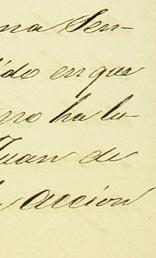 na Sen-
ido en que
no ha lu-
Juan de
accion